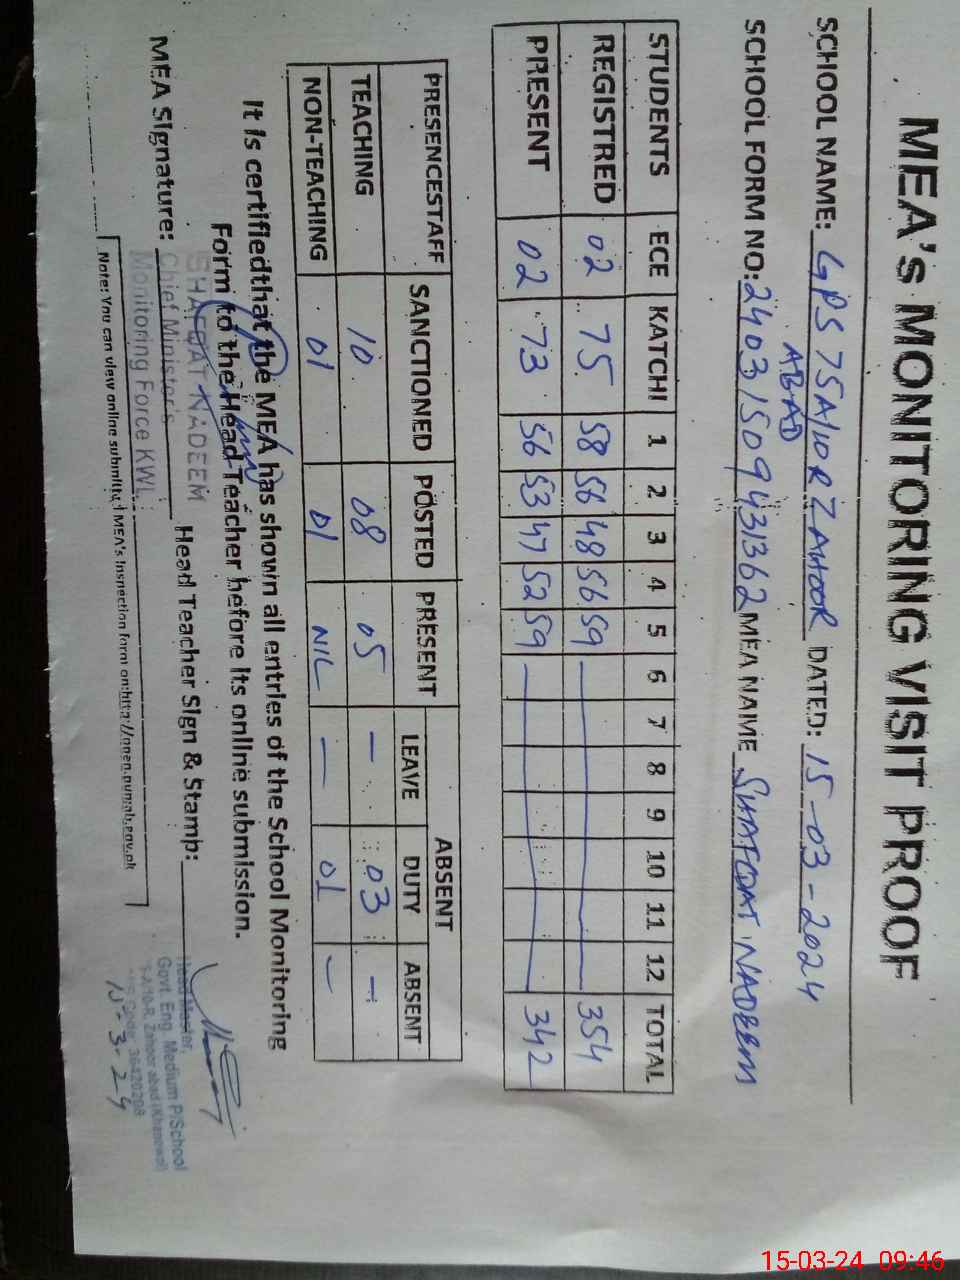 MEA's MONITORING VISIT PROOF
SCHOOL NAME: GPS 75A/10R ZAHOOR ABAD DATED: 15-03-2024
SCHOOL FORM NO: 2403150943 1362 MEA NAME SHAFQAT NADEEM
STUDENTS ECE KATCHI 1 2 3 4 5 6 7 8 9 10 11 12 TOTAL
REGISTRED 02 75 58 56 48 56 59 354
PRESENT 02 73 56 53 47 52 59 342
PRESENCESTAFF SANCTIONED POSTED PRESENT ABSENT
LEAVE DUTY ABSENT
TEACHING 10 08 05 - 03 -
NON-TEACHING 01 01 NIL - 01 -
It is certifiedthat the MEA has shown all entries of the School Monitoring
Form to the Head Teacher before its online submission.
SHAFQAT NADEEM
Chief Minister's
Monitoring Force KWL
MEA Signature: Head Teacher Sign & Stamp:
Head Master,
Govt. Eng. Medium P/School
75-A/10-R, Zahoor abad (Khanewal)
Code: 36420208
15-3-24
Note: You can view online submitted MEA's Inspection form on:http://open.punjab.gov.pk
15-03-24 09:46